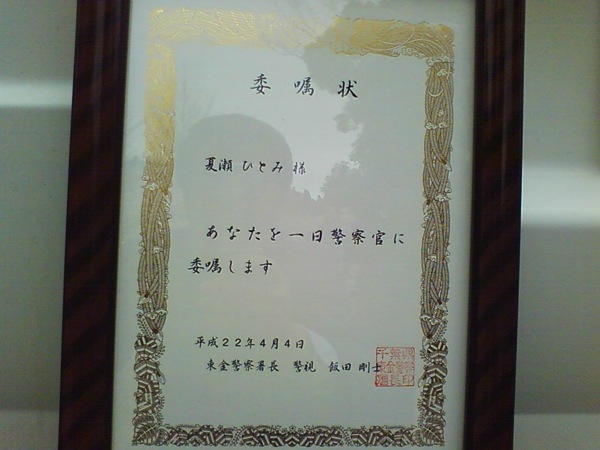 委嘱状
夏瀬 ひとみ 様
あなたを一日警察官に
委嘱します
平成22年4月4日
東金警察署長 警視 飯田 剛士